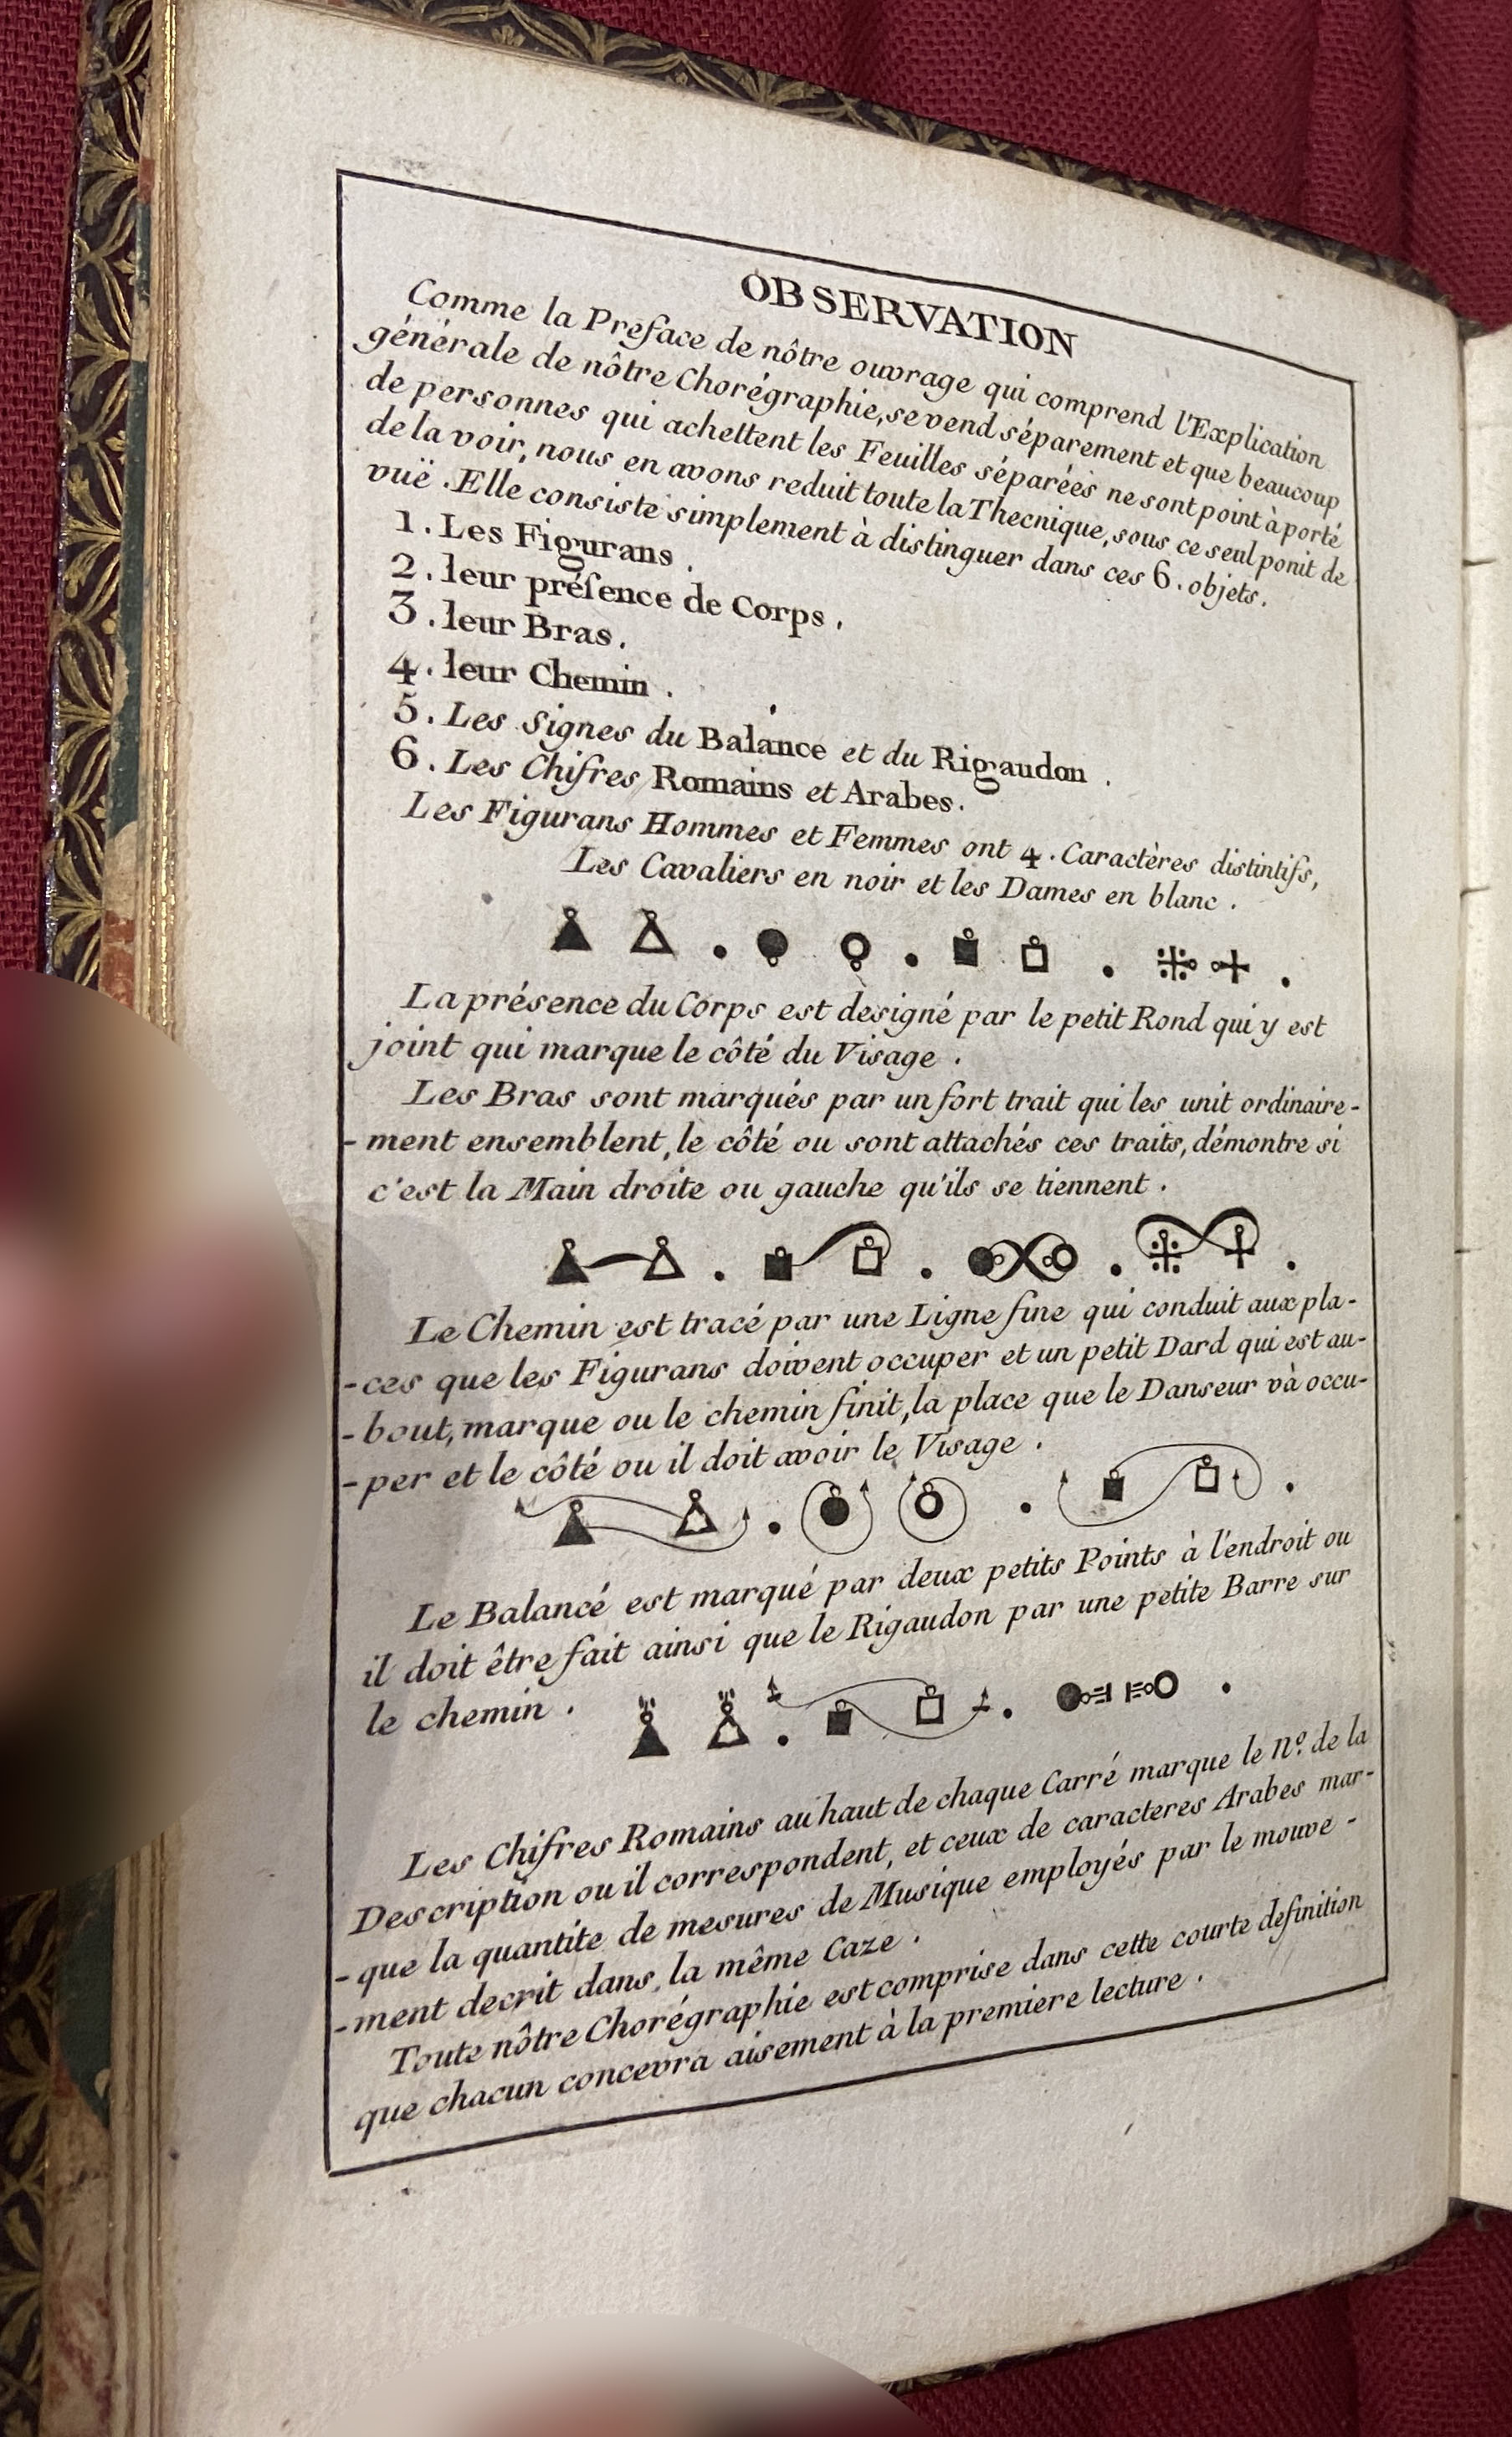 OBSERVATION
Comme la Preface de nôtre ouvrage qui comprend l'Explication
générale de nôtre Chorégraphie, se vend séparement et que beaucoup
de personnes qui achettent les Feuilles séparéès ne sont point à porté
de la voir, nous en avons reduit toute la Thecnique, sous ce seul ponit de
vuë. Elle consiste simplement à distinguer dans ces 6. objets.
1. Les Figurans.
2. leur présence de Corps.
3. leur Bras.
4. leur Chemin.
5. Les Signes du Balance et du Rigaudon.
6. Les Chifres Romains et Arabes.
Les Figurans Hommes et Femmes ont 4. Caractères distintifs,
Les Cavaliers en noir et les Dames en blanc.
La présence du Corps est designé par le petit Rond qui y est
joint qui marque le côté du Visage.
Les Bras sont marqués par un fort trait qui les unit ordinaire-
-ment ensemblent, le côté ou sont attachés ces traits, démontre si
c'est la Main droite ou gauche qu'ils se tiennent.
Le Chemin est tracé par une Ligne fine qui conduit aux pla-
-ces que les Figurans doivent occuper et un petit Dard qui est au-
-bout, marque ou le chemin finit, la place que le Danseur và occu-
-per et le côté ou il doit avoir le Visage.
Le Balancé est marqué par deux petits Points à l'endroit ou
il doit être fait ainsi que le Rigaudon par une petite Barre sur
le chemin.
Les Chifres Romains au haut de chaque Carré marque le N.º de la
Description ou il correspondent, et ceux de caracteres Arabes mar-
-que la quantite de mesures de Musique employés par le mouve-
-ment decrit dans la même Caze.
Toute nôtre Chorégraphie est comprise dans cette courte definition
que chacun concevra aisement à la premiere lecture.